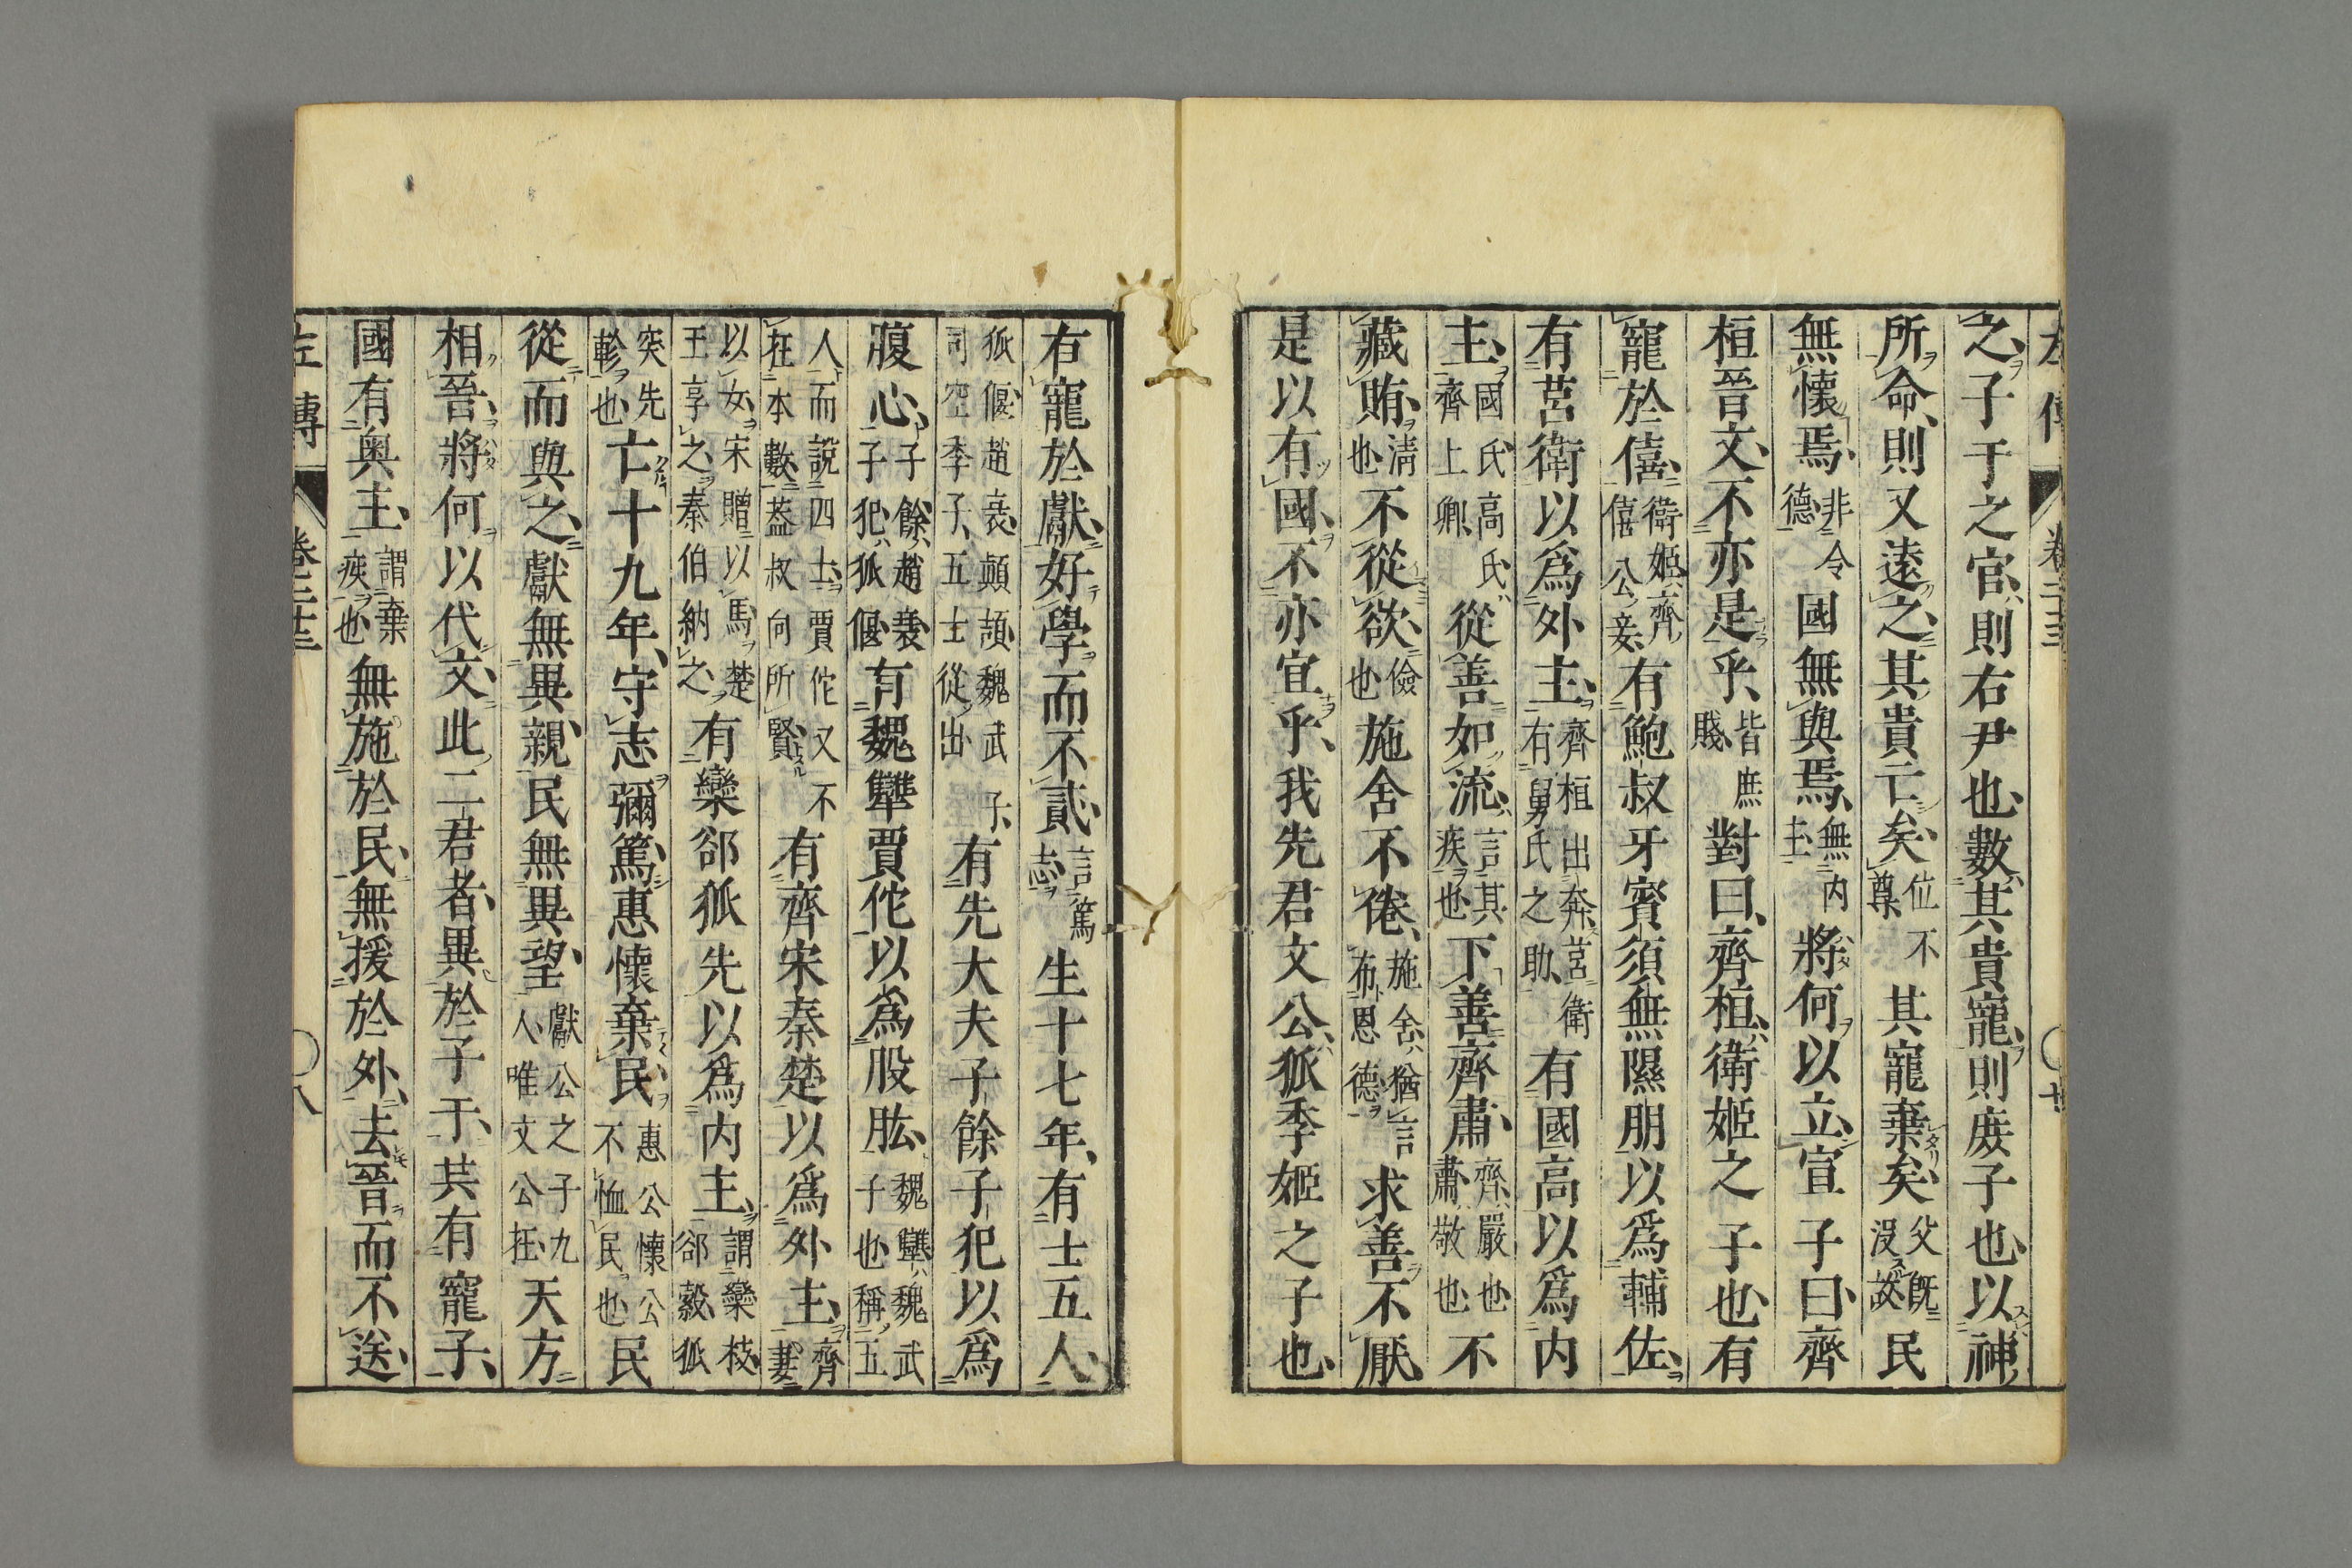 左傳 卷二十三 ○十
之子干之官則右尹也數其貴寵則庻子也以神
所命則又遠之其貴亡矣位不尊其寵棄矣父旣沒故民
無懷焉非令德國無與焉無内主將何以立宣子曰齊
桓晉文不亦是乎皆庶賤對曰齊桓衛姬之子也有
寵於僖衛姬齊僖公妾有鮑叔牙賓須無隰朋以爲輔佐
有莒衛以爲外主齊桓出奔莒衛有舅氏之助有國高以爲内
主國氏高氏齊上卿從善如流言其疾也下善齊肅齊嚴也肅敬也不
藏賄清也不從欲儉也施舍不倦施舍猶言布恩德求善不厭
是以有國不亦宜乎我先君文公狐季姬之子也
有寵於獻好學而不貳言篤志生十七年有士五人
狐偃趙衰顛頡魏武子司空季子五士從出有先大夫子餘子犯以爲
腹心子餘趙衰子犯狐偃有魏犨賈佗以爲股肱魏犨魏武子也稱五
人而說四士賈佗又不在本數蓋叔向所賢有齊宋秦楚以爲外主齊妻
以女宋贈以馬楚王享之秦伯納之有欒郤狐先以爲内主謂欒枝郤縠狐
突先軫也亡十九年守志彌篤惠懷棄民惠公懷公不恤民也民
從而與之獻無異親民無異望獻公之子九人唯文公在天方
相晉將何以代文此二君者異於子干共有寵子
國有奥主謂棄疾也無施於民無援於外去晉而不送
左傳 卷二十三 ○八